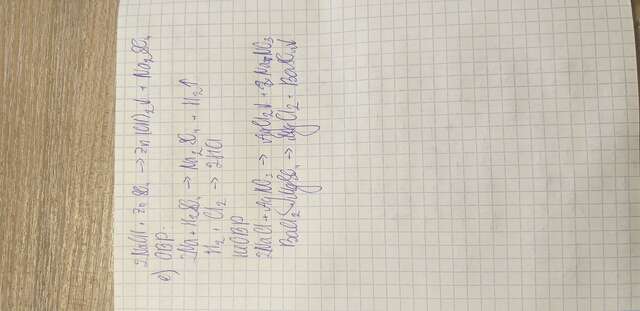 2NaOH + ZnSO₄ → Zn(OH)₂↓ + Na₂SO₄
ОВР
e)
2Na + H₂SO₄ → Na₂SO₄ + H₂↑
H₂ + Cl₂ → 2HCl
НеОВР
2NaCl + AgNO₃ → AgCl₂↓ + 2NaNO₃
BaCl₂ + MgSO₄ → MgCl₂ + BaSO₄↓